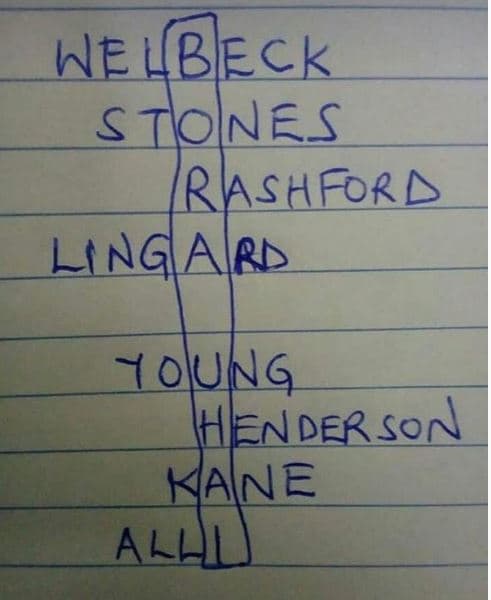 WELBECK
STONES
RASHFORD
LINGARD
YOUNG
HENDERSON
KANE
ALLI